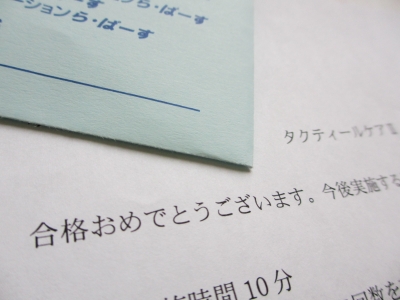 ーションら・ばーす
タクティールケアⅡ
合格おめでとうございます。今後実施する
時間10分
回数を